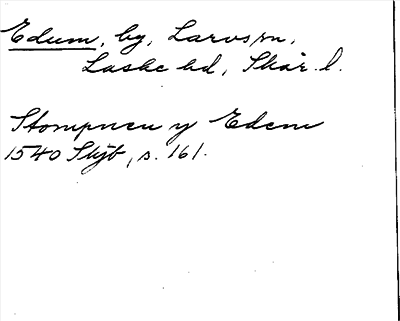 Edum, by, Larvs sn,
Laske hd, Skar. l.
Stompneu y Edem
1540 Skjb, s. 161.